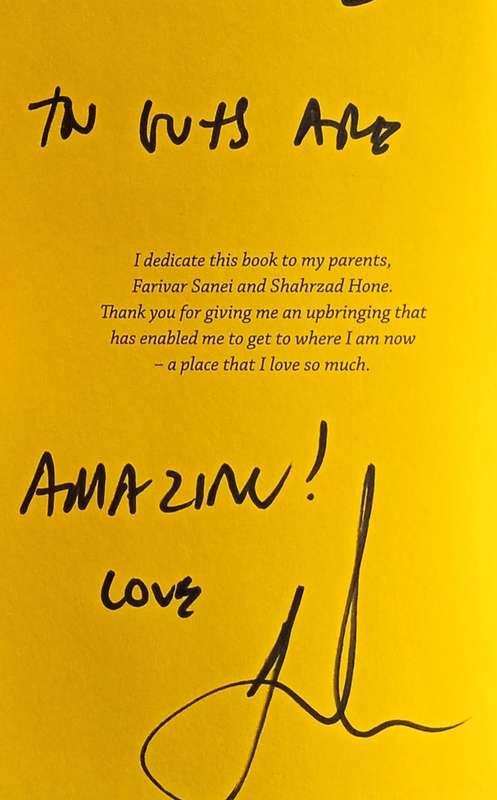 GUTS ARE
I dedicate this book to my parents,
Farivar Sanei and Shahrzad Hone.
Thank you for giving me an upbringing that
has enabled me to get to where I am now
– a place that I love so much.
AMAZING!
LOVE